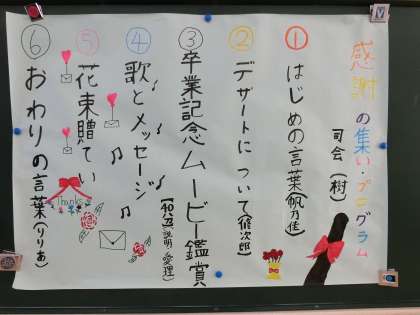 感謝の集い・プログラム
司会(樹)
① はじめの言葉(帆乃佳)
② デザートについて(修次郎)
③ 卒業記念ムービー鑑賞
【和乃】説明 愛理
④ 歌とメッセージ
⑤ 花束贈てい
⑥ おわりの言葉(りりあ)
Thanks